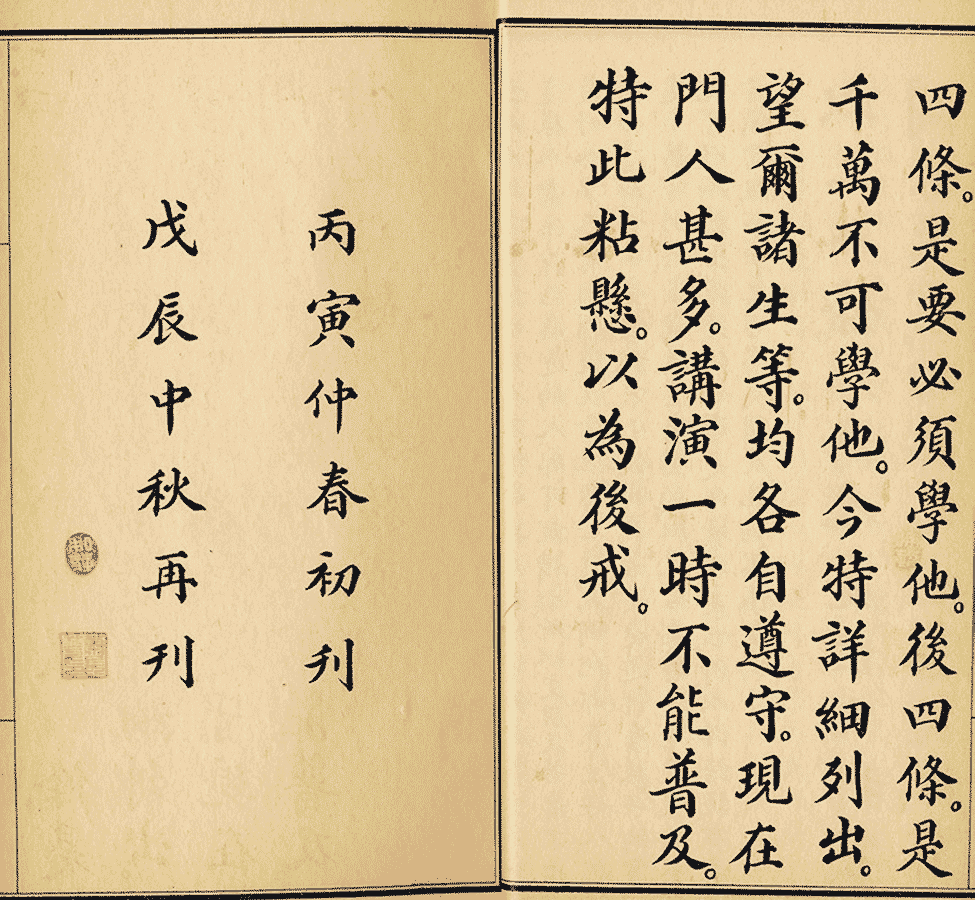 四條。是要必須學他。後四條。是
千萬不可學他。今特詳細列出。
望爾諸生等。均各自遵守。現在
門人甚多。講演一時不能普及。
特此粘懸。以為後戒。
丙寅仲春初刊
戊辰中秋再刊